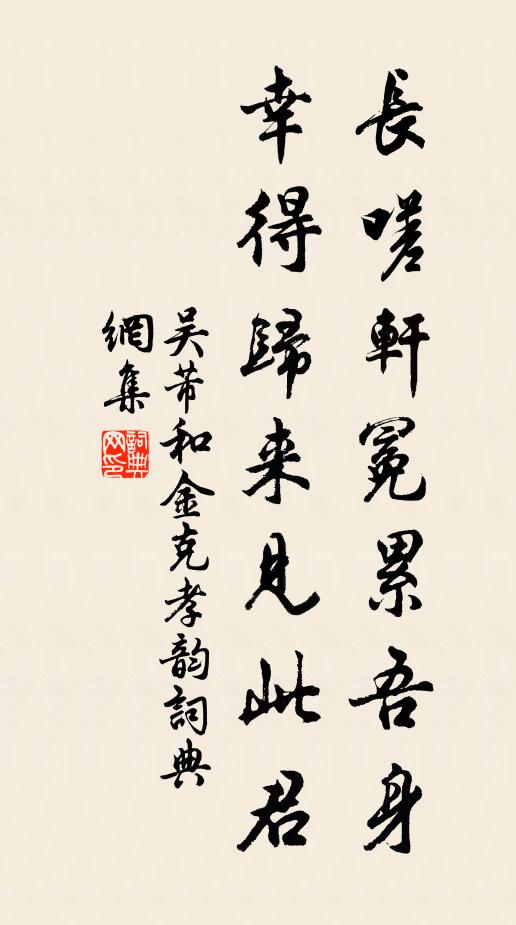 長嗟軒冕累吾身
幸得歸来見此君
吴芾和金克孝韵詞典
網集
詞典
网印